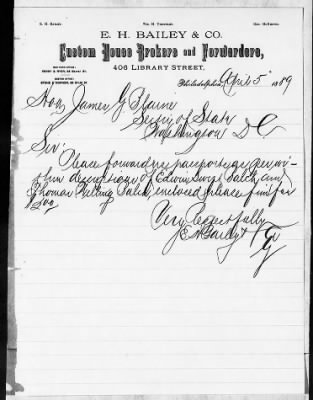 E. H. BAILEY & CO.
Custom House Brokers and Forwarders,
406 LIBRARY STREET,
Philadelphia, April 5" 1889
Hon James G Blaine
Secy of State
Washington D C
Sir:
Please forward passports as per
within descriptions of Edwin Balch and
Thomas Willing Balch, enclosed please find for
$2.00
Very Respectfully
E H Bailey & Co